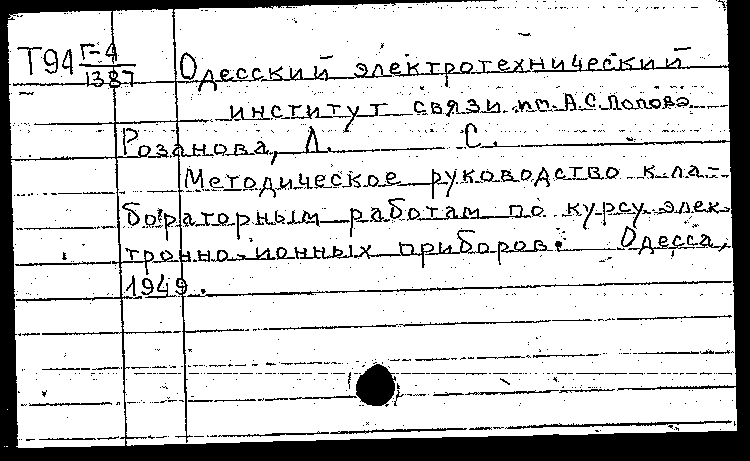 Т94 Г-4
1387
Одесский электротехнический
институт связи им. А.С. Попова
Розанова, Л. С.
Методическое руководство к ла-
бораторным работам по курсу элек-
тронно-ионных приборов. Одесса,
1949.